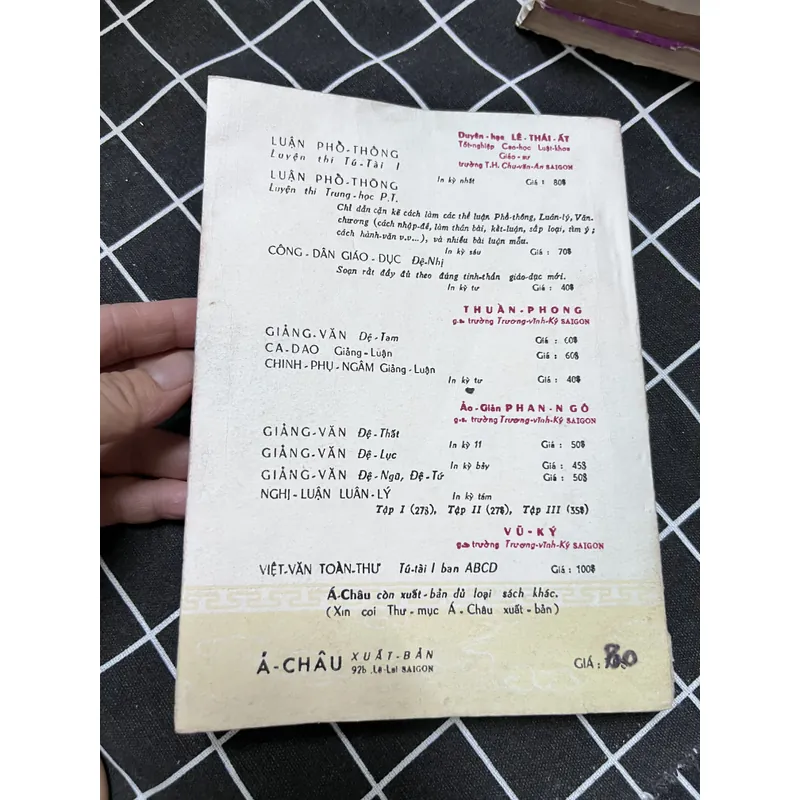 Duyên-hạc LÊ-THÁI-ẤT
Tốt-nghiệp Cao-học Luật-khoa
Giáo-sư
trường T.H. Chu-văn-An SAIGON
LUẬN PHỔ-THÔNG
Luyện thi Tú-Tài I
In kỳ nhất Giá : 80$
LUẬN PHỔ-THÔNG
Luyện thi Trung-học P.T.
Chỉ dẫn cặn kẽ cách làm các thể luận Phổ-thông, Luân-lý, Văn-
chương (cách nhập-đề, làm thân bài, kết-luận, sắp loại, tìm ý ;
cách hành-văn v.v...), và nhiều bài luận mẫu.
In kỳ sáu Giá : 70$
CÔNG-DÂN GIÁO-DỤC Đệ-Nhị
Soạn rất đầy đủ theo đúng tinh-thần giáo-dục mới.
In kỳ tư Giá : 40$
THUẦN-PHONG
g.s. trường Trương-vĩnh-Ký SAIGON
GIẢNG-VĂN Đệ-Tam Giá : 60$
CA-DAO Giảng-Luận Giá : 60$
CHINH-PHỤ-NGÂM Giảng-Luận
In kỳ tư Giá : 40$
Ảo-Giản PHAN-NGÔ
g.s. trường Trương-vĩnh-Ký SAIGON
GIẢNG-VĂN Đệ-Thất In kỳ 11 Giá : 50$
GIẢNG-VĂN Đệ-Lục In kỳ bảy Giá : 45$
GIẢNG-VĂN Đệ-Ngũ, Đệ-Tứ Giá : 50$
NGHỊ-LUẬN LUÂN-LÝ In kỳ tám
Tập I (27$), Tập II (27$), Tập III (35$)
VŨ-KÝ
g.s. trường Trương-vĩnh-Ký SAIGON
VIỆT-VĂN TOÀN-THƯ Tú-tài I ban ABCD Giá : 100$
Á-Châu còn xuất-bản đủ loại sách khác.
(Xin coi Thư-mục Á-Châu xuất-bản)
Á-CHÂU XUẤT-BẢN
92b .Lê-Lai SAIGON
GIÁ : 80